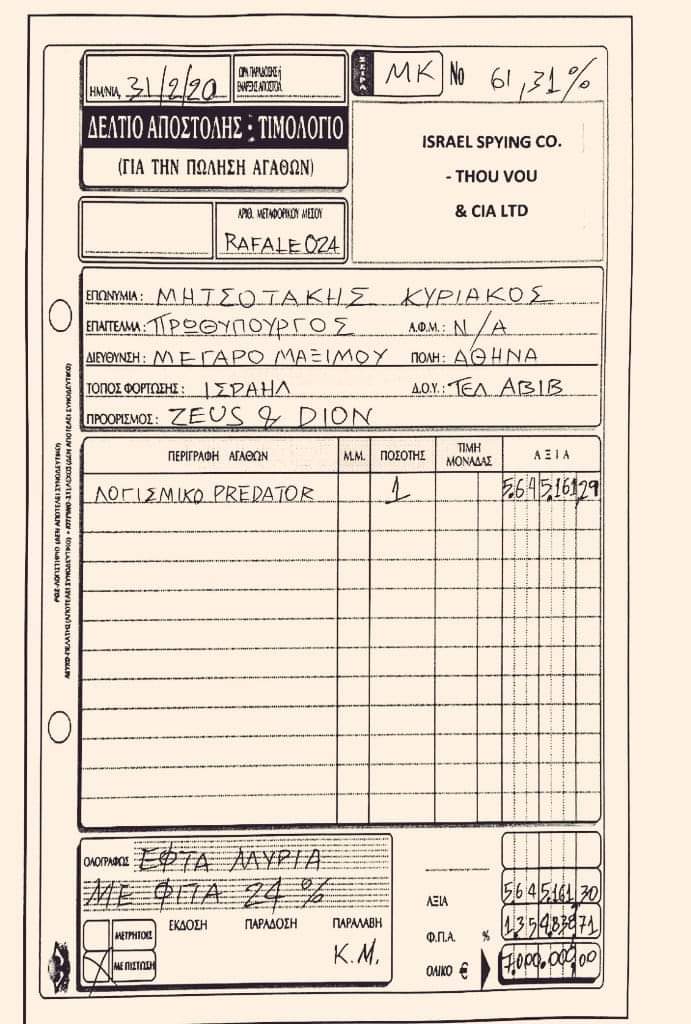 ΗΜ/ΝΙΑ, 31/2/20
ΩΡΑ ΠΑΡΑΔΟΣΗΣ ή
ΕΝΑΡΞΗΣ ΑΠΟΣΤΟΛ.
ΣΕΙΡΑ ΜΚ Νο 61,31%
ΔΕΛΤΙΟ ΑΠΟΣΤΟΛΗΣ - ΤΙΜΟΛΟΓΙΟ
(ΓΙΑ ΤΗΝ ΠΩΛΗΣΗ ΑΓΑΘΩΝ)
ISRAEL SPYING CO.
- THOU VOU
& CIA LTD
ΑΡΙΘ. ΜΕΤΑΦΟΡΙΚΟΥ ΜΕΣΟΥ
RAFALE 024
ΕΠΩΝΥΜΙΑ: ΜΗΤΣΟΤΑΚΗΣ ΚΥΡΙΑΚΟΣ
ΕΠΑΓΓΕΛΜΑ: ΠΡΩΘΥΠΟΥΡΓΟΣ Α.Φ.Μ.: N/A
ΔΙΕΥΘΥΝΣΗ: ΜΕΓΑΡΟ ΜΑΞΙΜΟΥ ΠΟΛΗ: ΑΘΗΝΑ
ΤΟΠΟΣ ΦΟΡΤΩΣΗΣ: ΙΣΡΑΗΛ Δ.Ο.Υ.: ΤΕΛ ΑΒΙΒ
ΠΡΟΟΡΙΣΜΟΣ: ZEUS & DION
ΠΕΡΙΓΡΑΦΗ ΑΓΑΘΩΝ Μ.Μ. ΠΟΣΟΤΗΣ ΤΙΜΗ ΜΟΝΑΔΑΣ ΑΞΙΑ
ΛΟΓΙΣΜΙΚΟ PREDATOR 1 5.645.161,29
ΟΛΟΓΡΑΦΩΣ ΕΦΤΑ ΜΥΡΙΑ
ΜΕ ΦΙΠΑ 24%
ΜΕΤΡΗΤΟΙΣ
ΜΕ ΠΙΣΤΩΣΗ
ΕΚΔΟΣΗ ΠΑΡΑΔΟΣΗ ΠΑΡΑΛΑΒΗ
Κ.Μ.
ΑΞΙΑ 5.645.161,30
Φ.Π.Α. % 1.354.838,71
ΟΛΙΚΟ € 7.000.000,00